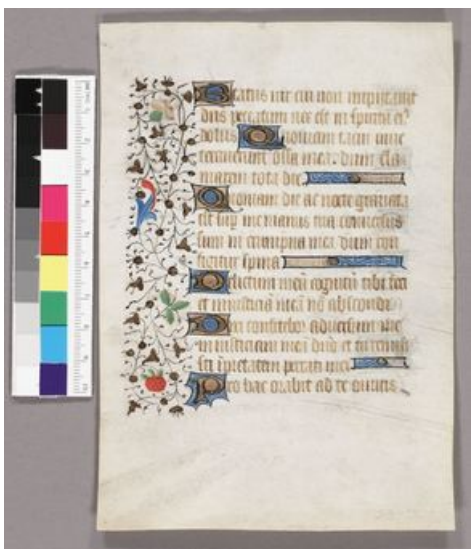 Beatus vir cui non imputavit
dñs peccatum nec est in spiritu ei9
dolus Quoniam tacui inve
teraverunt ossa mea dum cla
marem tota die
Quoniam die ac nocte gravata
est sup me manus tua conversus
sum in erumpna mea dum con
figitur spina
Delictum meũ cognitũ tibi feci
et iniusticiã meã nõ abscondi
Dixi confitebor adversum me
iniusticiam meã dñõ et tu remisi
sti ĩpietatem peccati mei
Pro hac orabit ad te omnis